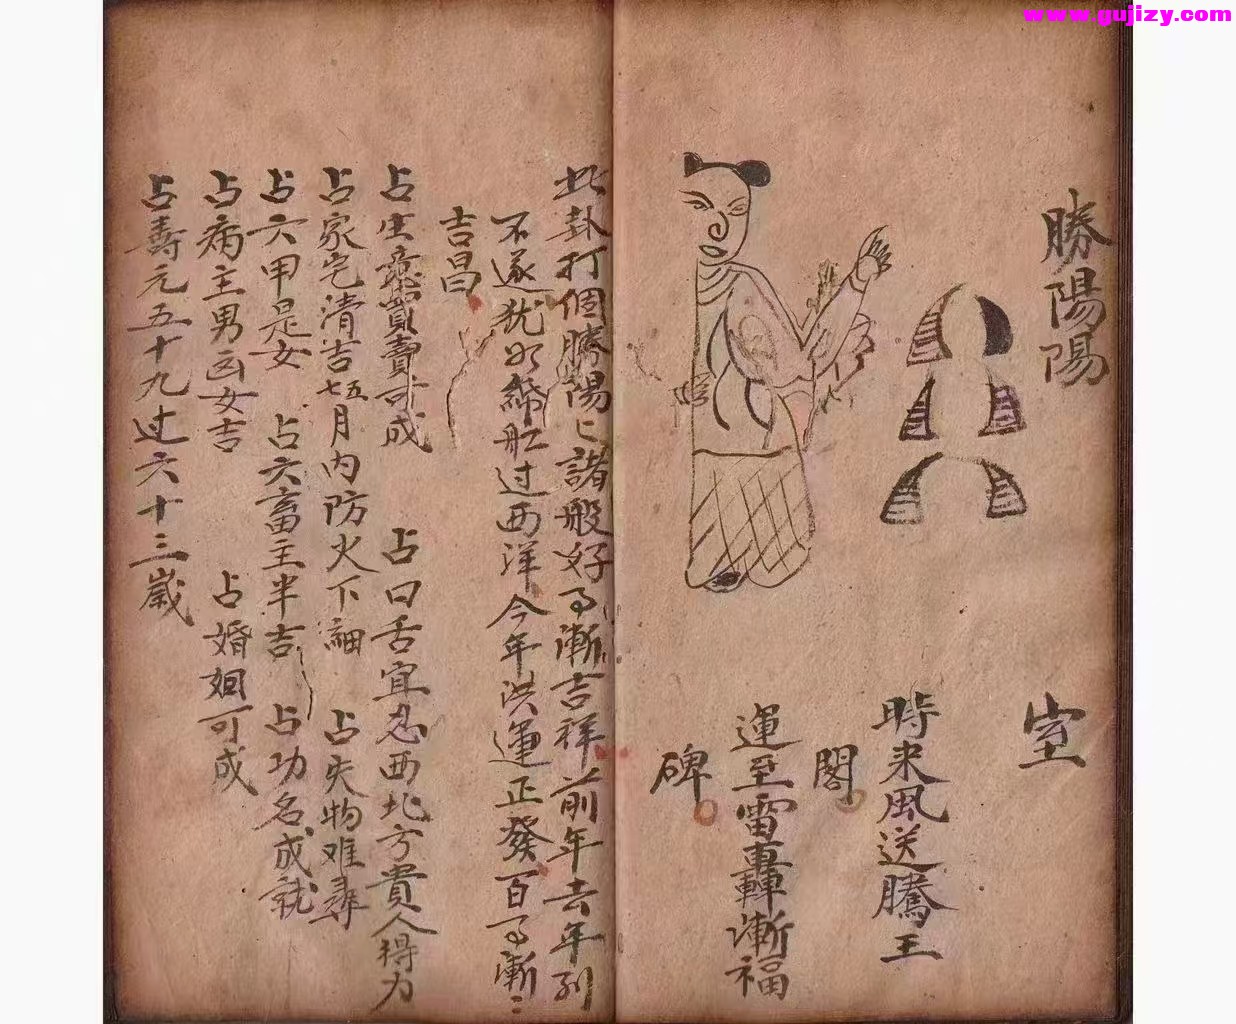 www.gujizy.com
勝陽陽
室
時来風送騰王
閣
運至雷轟漸福
碑
此卦打個勝陽匕諸般好事漸吉祥前年去年列
不遂犹如綿舡过西洋今年洪運正發百事漸：
吉昌
占生意買賣可成 占口舌宜忍西北方貴人得力
占家宅清吉七五月内防火下細 占失物难尋
占六甲是女 占六畜主半吉 占功名成就
占病主男凶女吉 占婚姻可成
占壽元五十九过六十三歲